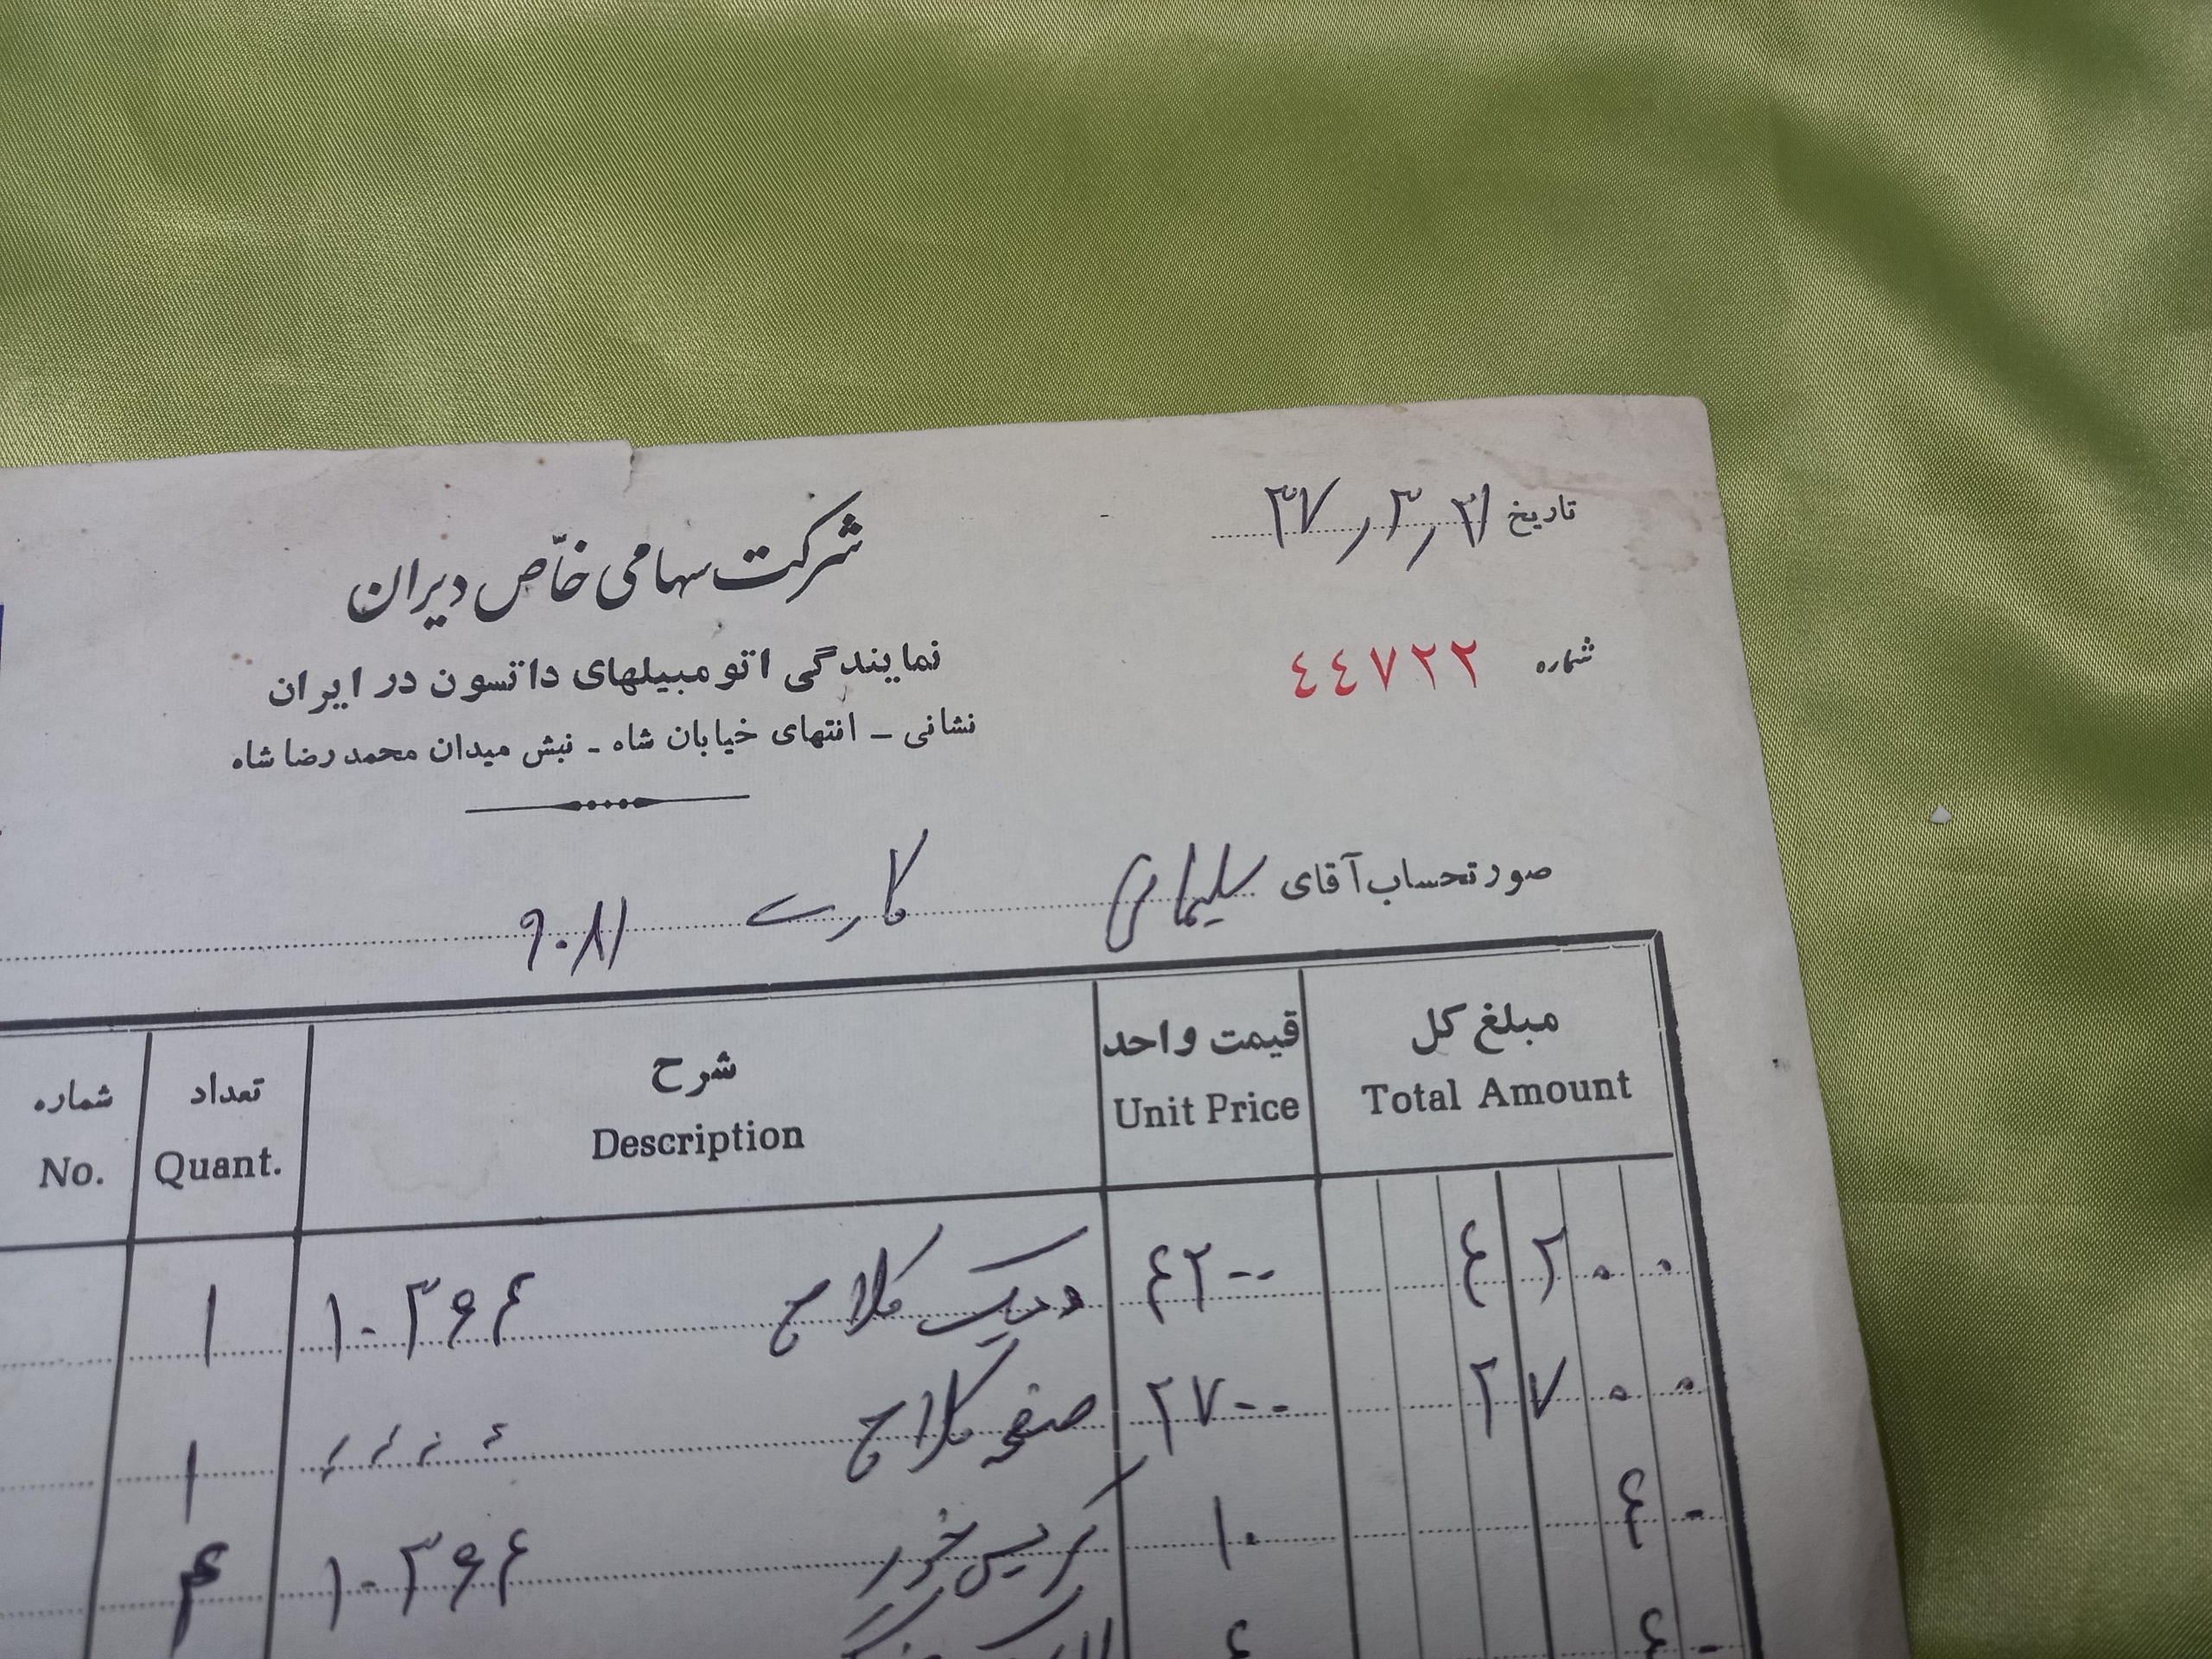 تاریخ ۳۷,۳,۳۱
شرکت سهامی خاّص دیران
شماره ٤٤٧٢٢
نمایندگی اتومبیلهای داتسون در ایران
نشانی - انتهای خیابان شاه - نبش میدان محمدرضا شاه
صورتحساب آقای سلیمانی کارت ۹۰۸۱
مبلغ کل قیمت واحد شرح تعداد شماره
Total Amount Unit Price Description Quant. No.
۴۲۰۰ ۴۲۰۰ دیسک کلاج ۱۰۳۶۴ ۱
۲۷۰۰ ۲۷۰۰ صفحه کلاج ۱
۴۰ ۱۰ گریس خور ۱۰۳۶۴ ۴